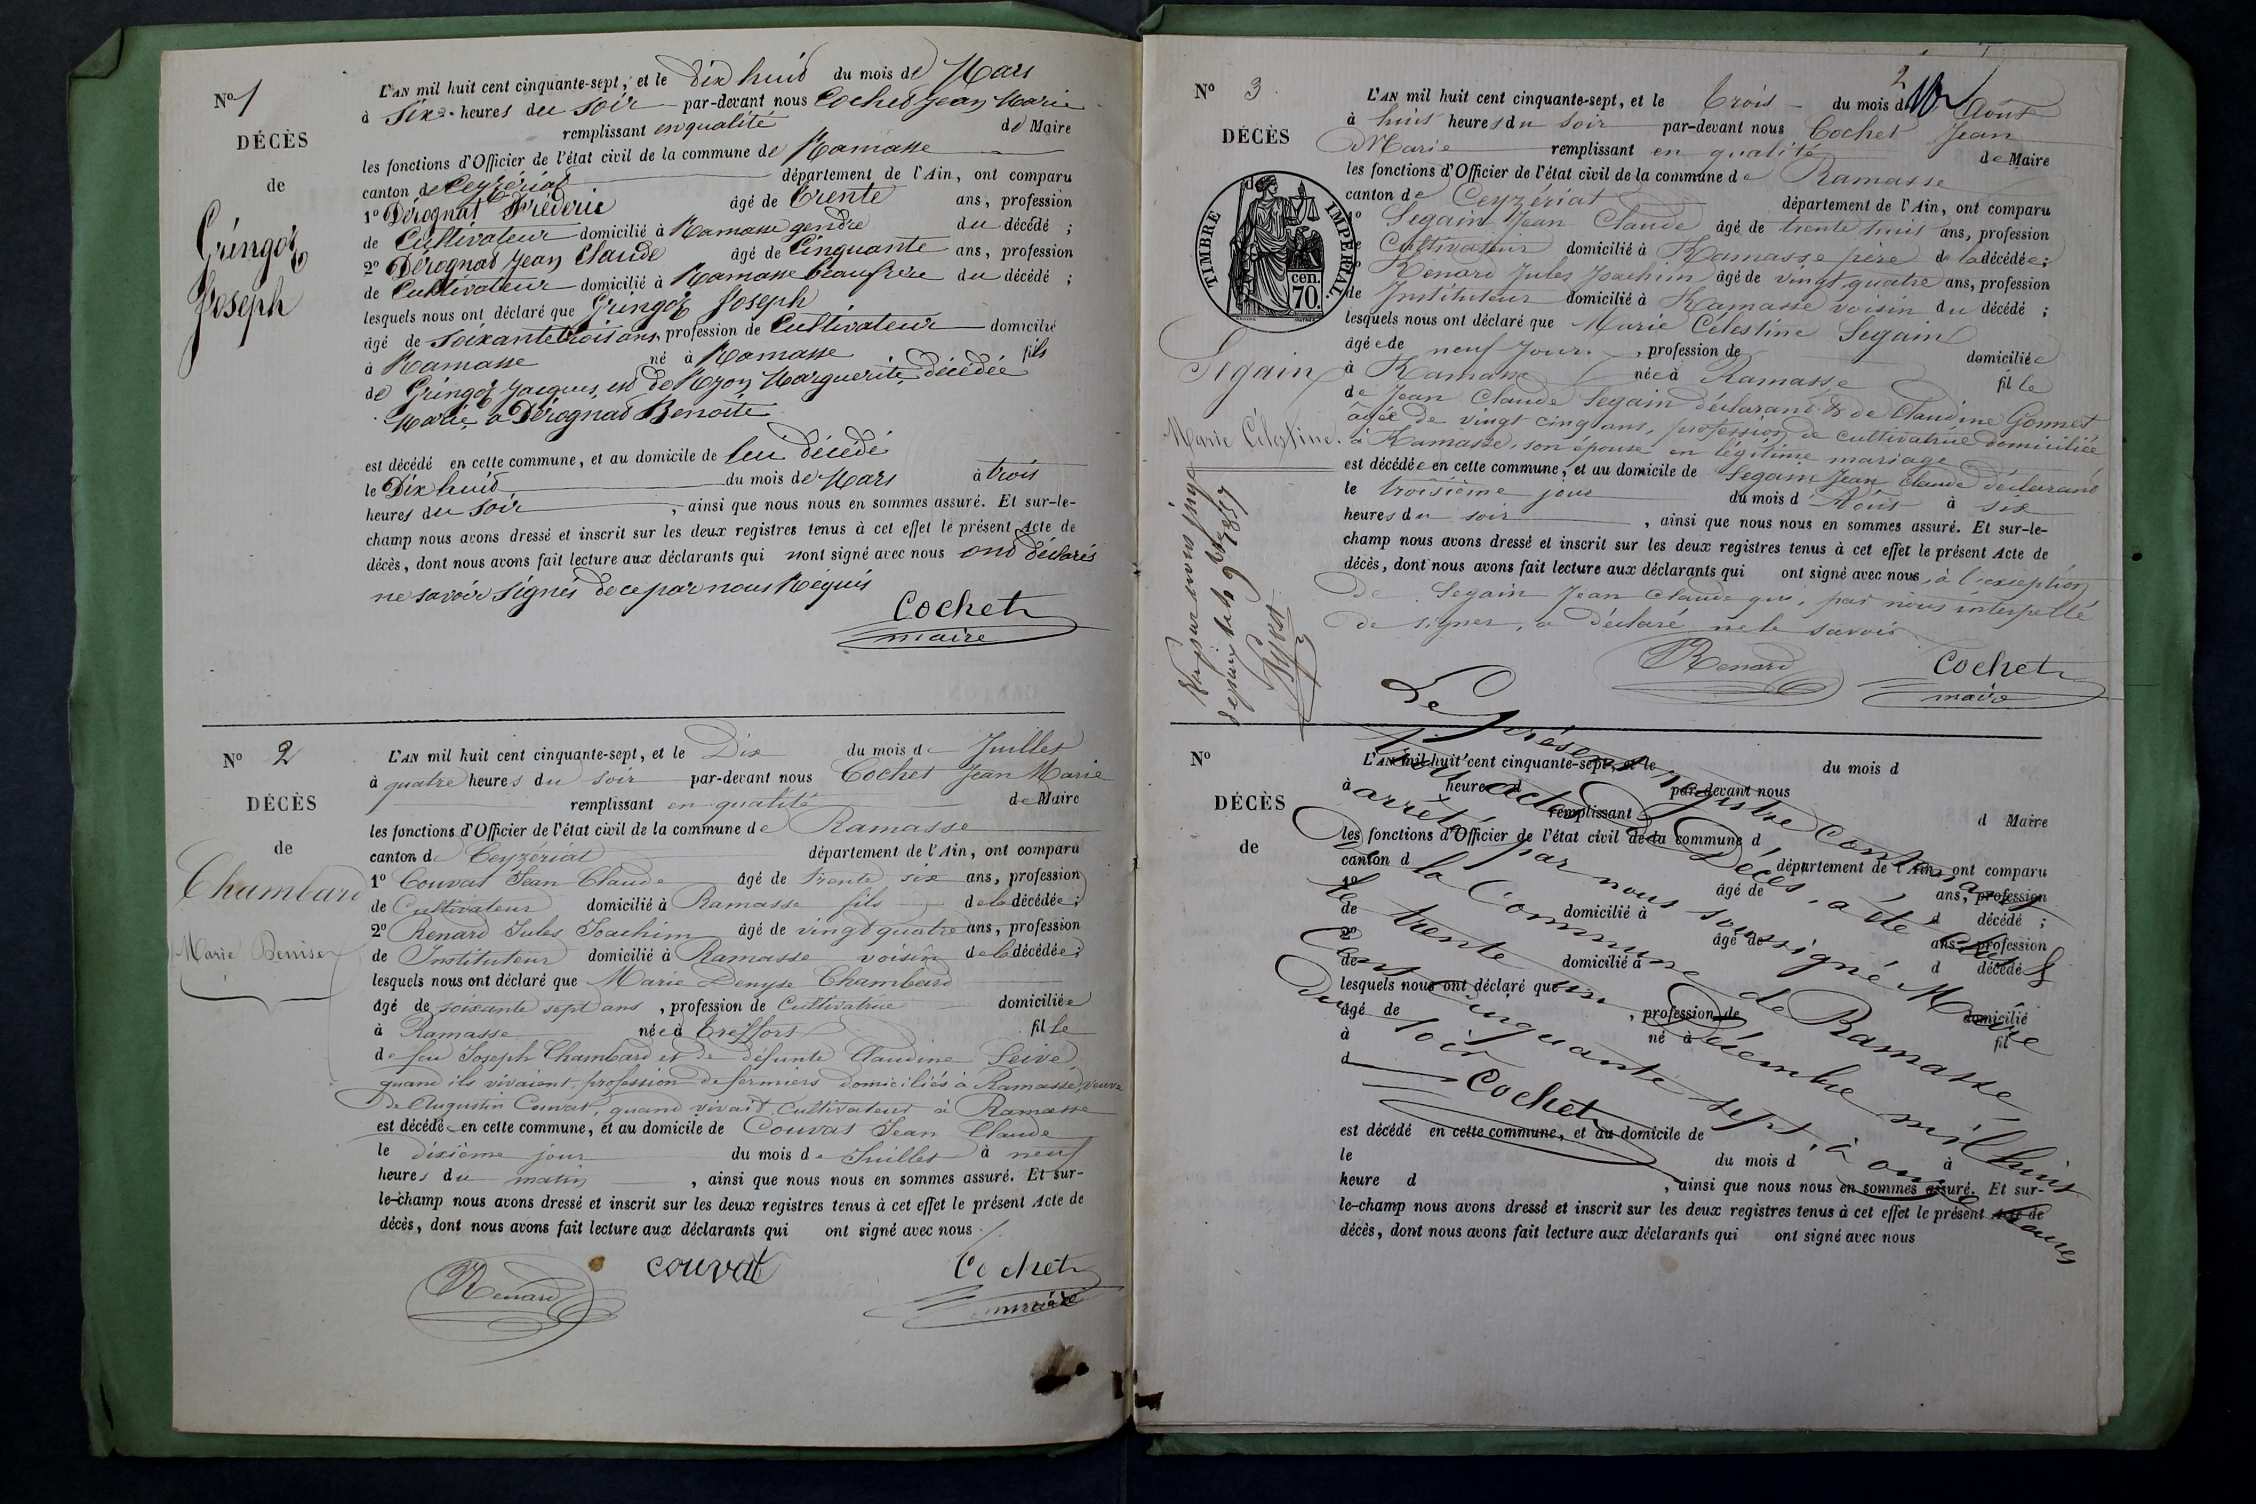 N° 1
DÉCÈS
de
Gringoz
Joseph
L'AN mil huit cent cinquante-sept, et le Dix huit du mois de Mars
à Six heures du soir par-devant nous Cochet Jean Marie
remplissant en qualité de Maire
les fonctions d'Officier de l'état civil de la commune de Ramasse
canton de Ceyzériat département de l'Ain, ont comparu
1° Dérognat Fréderic âgé de trente ans, profession
de Cultivateur domicilié à Ramasse gendre du décédé ;
2° Dérognat Jean Claude âgé de Cinquante ans, profession
de Cultivateur domicilié à Ramasse beaufrère du décédé ;
lesquels nous ont déclaré que Gringoz Joseph
âgé de soixante trois ans, profession de Cultivateur domicilié
à Ramasse né à Ramasse fils
de Gringoz Jacques, et de Marguerite, décédée
Marié a Dérognat Benoite
est décédé en cette commune, et au domicile de leu décédé
le Dix huit du mois de Mars à trois
heures du soir, ainsi que nous nous en sommes assuré. Et sur-le-
champ nous avons dressé et inscrit sur les deux registres tenus à cet effet le présent Acte de
décès, dont nous avons fait lecture aux déclarants qui nont signé avec nous ont déclarés
ne savoir signés de ce par nous Réquis
Cochet
maire
N° 2
DÉCÈS
de
Chambard
Marie Denise
L'AN mil huit cent cinquante-sept, et le Dix du mois de Juillet
à quatre heures du soir par-devant nous Cochet Jean Marie
remplissant en qualité de Maire
les fonctions d'Officier de l'état civil de la commune de Ramasse
canton de Ceyzériat département de l'Ain, ont comparu
1° Couvat Jean Claude âgé de trente six ans, profession
de Cultivateur domicilié à Ramasse fils de la décédée ;
2° Renard Jules Joachim âgé de vingt quatre ans, profession
de Instituteur domicilié à Ramasse voisin de la décédée ;
lesquels nous ont déclaré que Marie Denyse Chambard
âgé de soixante sept ans, profession de Cultivatrice domiciliée
à Ramasse née à Treffort fille
de feu Joseph Chambard et de défunte Claudine Seive,
quand ils vivaient, profession de fermiers domiciliés à Ramasse, veuve
de Augustin Couvat, quand vivait Cultivateur à Ramasse
est décédé en cette commune, et au domicile de Couvat Jean Claude
le dixième jour du mois de Juillet à neuf
heures du matin, ainsi que nous nous en sommes assuré. Et sur-
le-champ nous avons dressé et inscrit sur les deux registres tenus à cet effet le présent Acte de
décès, dont nous avons fait lecture aux déclarants qui ont signé avec nous
Renard couvat Cochet
maire
2
N° 3
DÉCÈS
TIMBRE IMPÉRIAL.
70 cen.
Segain
Marie Célestine.
L'AN mil huit cent cinquante-sept, et le trois du mois d Août
à huit heures du soir par-devant nous Cochet Jean
Marie remplissant en qualité de Maire
les fonctions d'Officier de l'état civil de la commune de Ramasse
canton de Ceyzériat département de l'Ain, ont comparu
1° Segain Jean Claude âgé de trente huit ans, profession
de Cultivateur domicilié à Ramasse père de la décédée ;
Renard Jules Joachim âgé de vingt quatre ans, profession
de Instituteur domicilié à Ramasse voisin du décédé ;
lesquels nous ont déclaré que Marie Célestine Segain
âgée de neuf jours, profession de domiciliée
à Ramasse née à Ramasse fille
de Jean Claude Segain déclarant & de Claudine Gonnet
âgée de vingt cinq ans, profession de cultivatrice domiciliée
à Ramasse, son épouse en légitime mariage
est décédée en cette commune, et au domicile de Segain Jean Claude déclarant
le troisième jour du mois d'Août à six
heures du soir, ainsi que nous nous en sommes assuré. Et sur-le-
champ nous avons dressé et inscrit sur les deux registres tenus à cet effet le présent Acte de
décès, dont nous avons fait lecture aux déclarants qui ont signé avec nous, à l'exception
de Segain Jean Claude qui, par nous interpellé
de signer, a déclaré ne le savoir.
Renard Cochet
maire
N°
DÉCÈS
de
L'AN mil huit cent cinquante-sept, et le du mois d
à heure d par-devant nous
remplissant d Maire
les fonctions d'Officier de l'état civil de la commune d
canton d département de l'Ain, ont comparu
1° âgé de ans, profession
de domicilié à d décédé ;
2° âgé de ans, profession
de domicilié à d décédé ;
lesquels nous ont déclaré que
âgé de , profession de domicilié
à né à fil
d
est décédé en cette commune, et au domicile de
le du mois d à
heure d , ainsi que nous nous en sommes assuré. Et sur-
le-champ nous avons dressé et inscrit sur les deux registres tenus à cet effet le présent Acte de
décès, dont nous avons fait lecture aux déclarants qui ont signé avec nous
Le présent registre contenant
trois actes de Décès, a été clos &
arrêté par nous soussigné Maire
de la Commune de Ramasse,
le trente un Décembre mil huit
cent cinquante sept à onze heures
du soir
Cochet